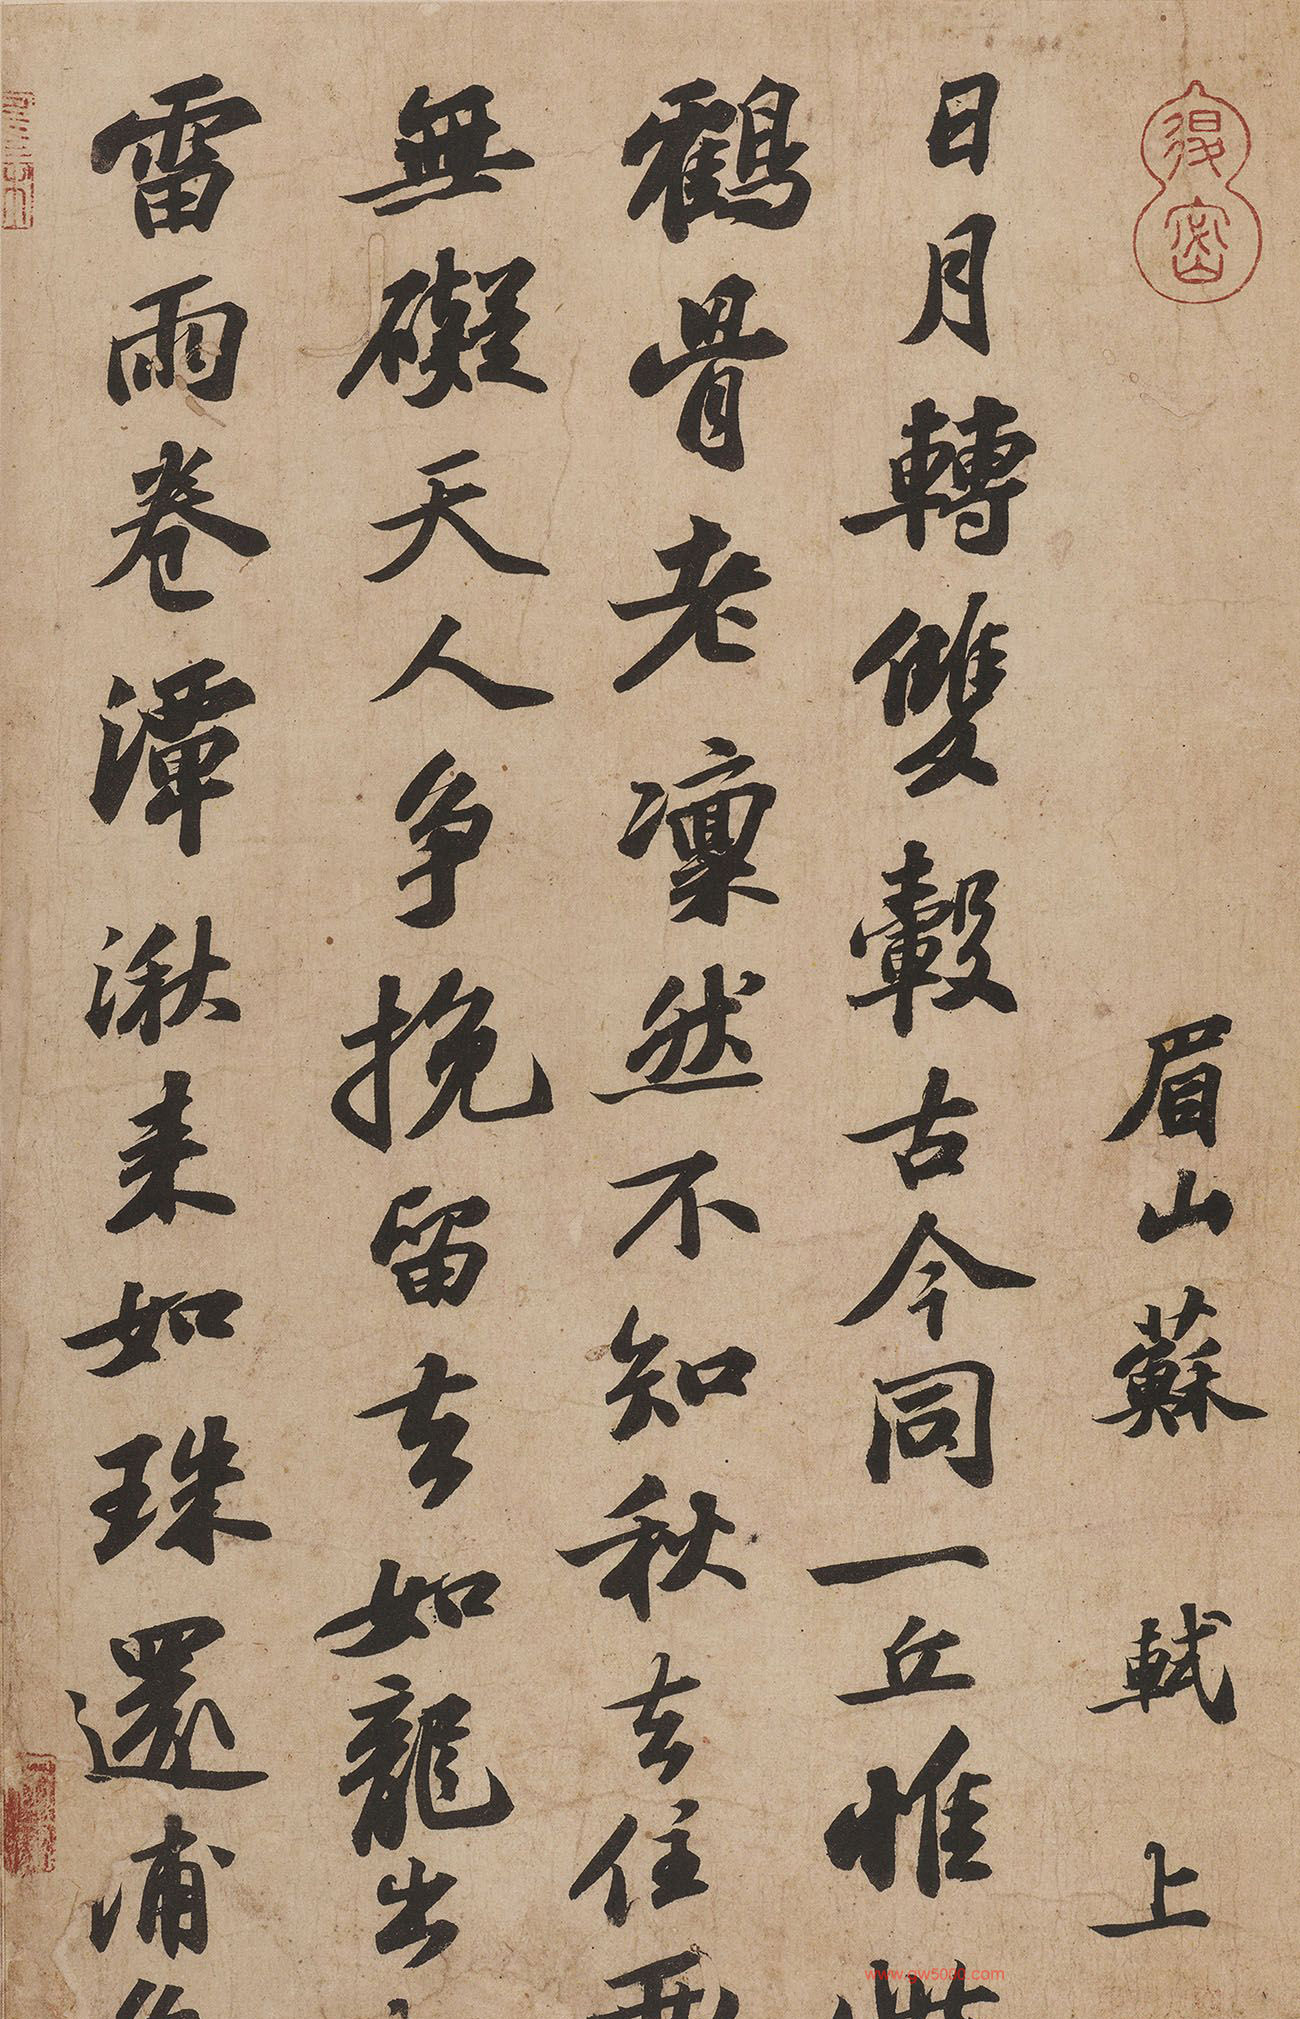 眉山蘇軾上
日月轉雙轂古今同一丘惟此
鶴骨老凜然不知秋去住兩
無礙天人爭挽留去如龍出
雷雨卷潭湫来如珠還浦魚
www.gw5000.com